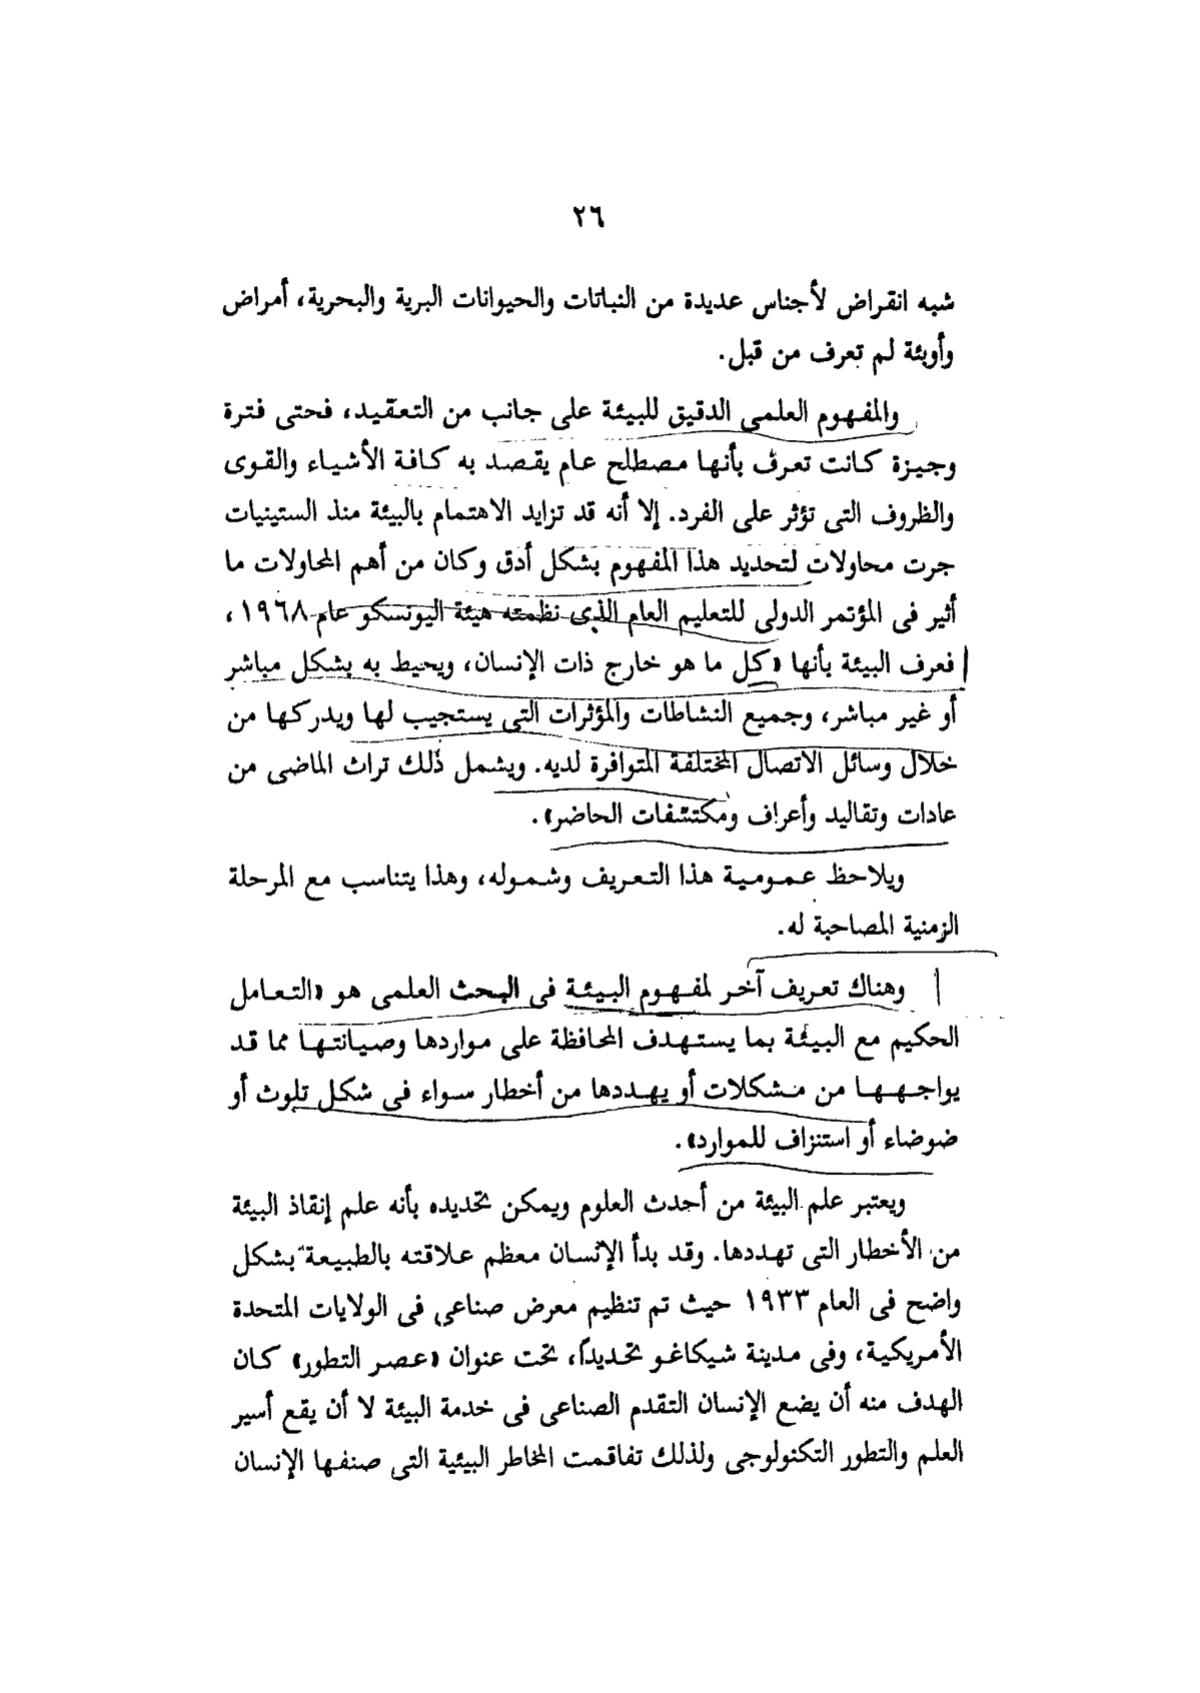 ٢٦
شبه انقراض لأجناس عديدة من النباتات والحيوانات البرية والبحرية، أمراض
وأوبئة لم تعرف من قبل.
والمفهوم العلمى الدقيق للبيئة على جانب من التعقيد، فحتى فترة
وجيزة كانت تعرف بأنها مصطلح عام يقصد به كافة الأشياء والقوى
والظروف التى تؤثر على الفرد. إلا أنه قد تزايد الاهتمام بالبيئة منذ الستينيات
جرت محاولات لتحديد هذا المفهوم بشكل أدق وكان من أهم المحاولات ما
أثير فى المؤتمر الدولى للتعليم العام الذى نظمته هيئة اليونسكو عام ١٩٦٨،
فعرف البيئة بأنها «كل ما هو خارج ذات الإنسان، ويحيط به بشكل مباشر
أو غير مباشر، وجميع النشاطات والمؤثرات التى يستجيب لها ويدركها من
خلال وسائل الاتصال المختلفة المتوافرة لديه. ويشمل ذلك تراث الماضى من
عادات وتقاليد وأعراف ومكتشفات الحاضر».
ويلاحظ عمومية هذا التعريف وشموله، وهذا يتناسب مع المرحلة
الزمنية المصاحبة له.
وهناك تعريف آخر لمفهوم البيئة فى البحث العلمى هو «التعامل
الحكيم مع البيئة بما يستهدف المحافظة على مواردها وصيانتها مما قد
يواجهها من مشكلات أو يهددها من أخطار سواء فى شكل تلوث أو
ضوضاء أو استنزاف للموارد».
ويعتبر علم البيئة من أحدث العلوم ويمكن تحديده بأنه علم إنقاذ البيئة
من الأخطار التى تهددها. وقد بدأ الإنسان معظم علاقته بالطبيعة بشكل
واضح فى العام ١٩٣٣ حيث تم تنظيم معرض صناعى فى الولايات المتحدة
الأمريكية، وفى مدينة شيكاغو تحديداً، تحت عنوان «عصر التطور» كان
الهدف منه أن يضع الإنسان التقدم الصناعى فى خدمة البيئة لا أن يقع أسير
العلم والتطور التكنولوجى ولذلك تفاقمت المخاطر البيئية التى صنفها الإنسان